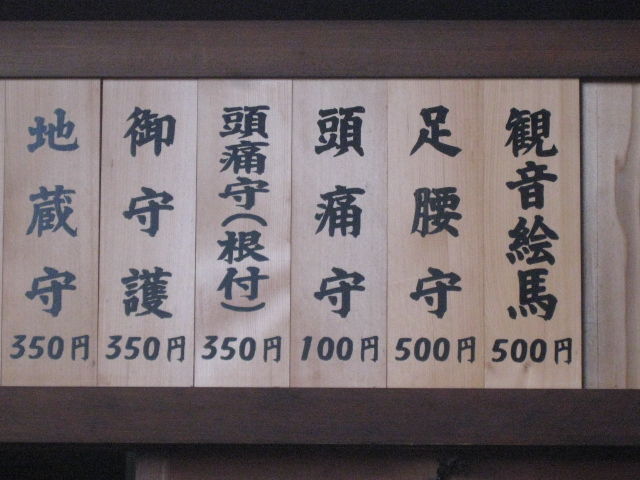 観音絵馬
500円
足腰守
500円
頭痛守
100円
頭痛守(根付)
350円
御守護
350円
地蔵守
350円